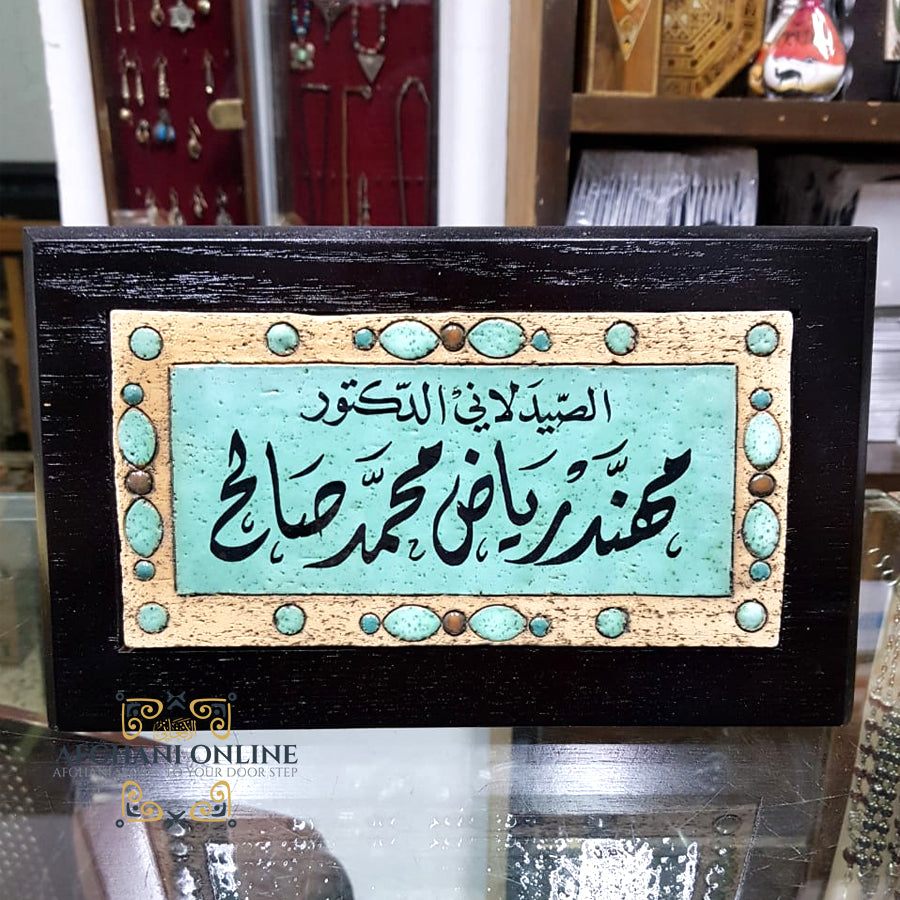 الصّيدَلاني الدّكتور
مهنّد رياض محمّد صالح
AFGHANI ONLINE
TO YOUR DOOR STEP